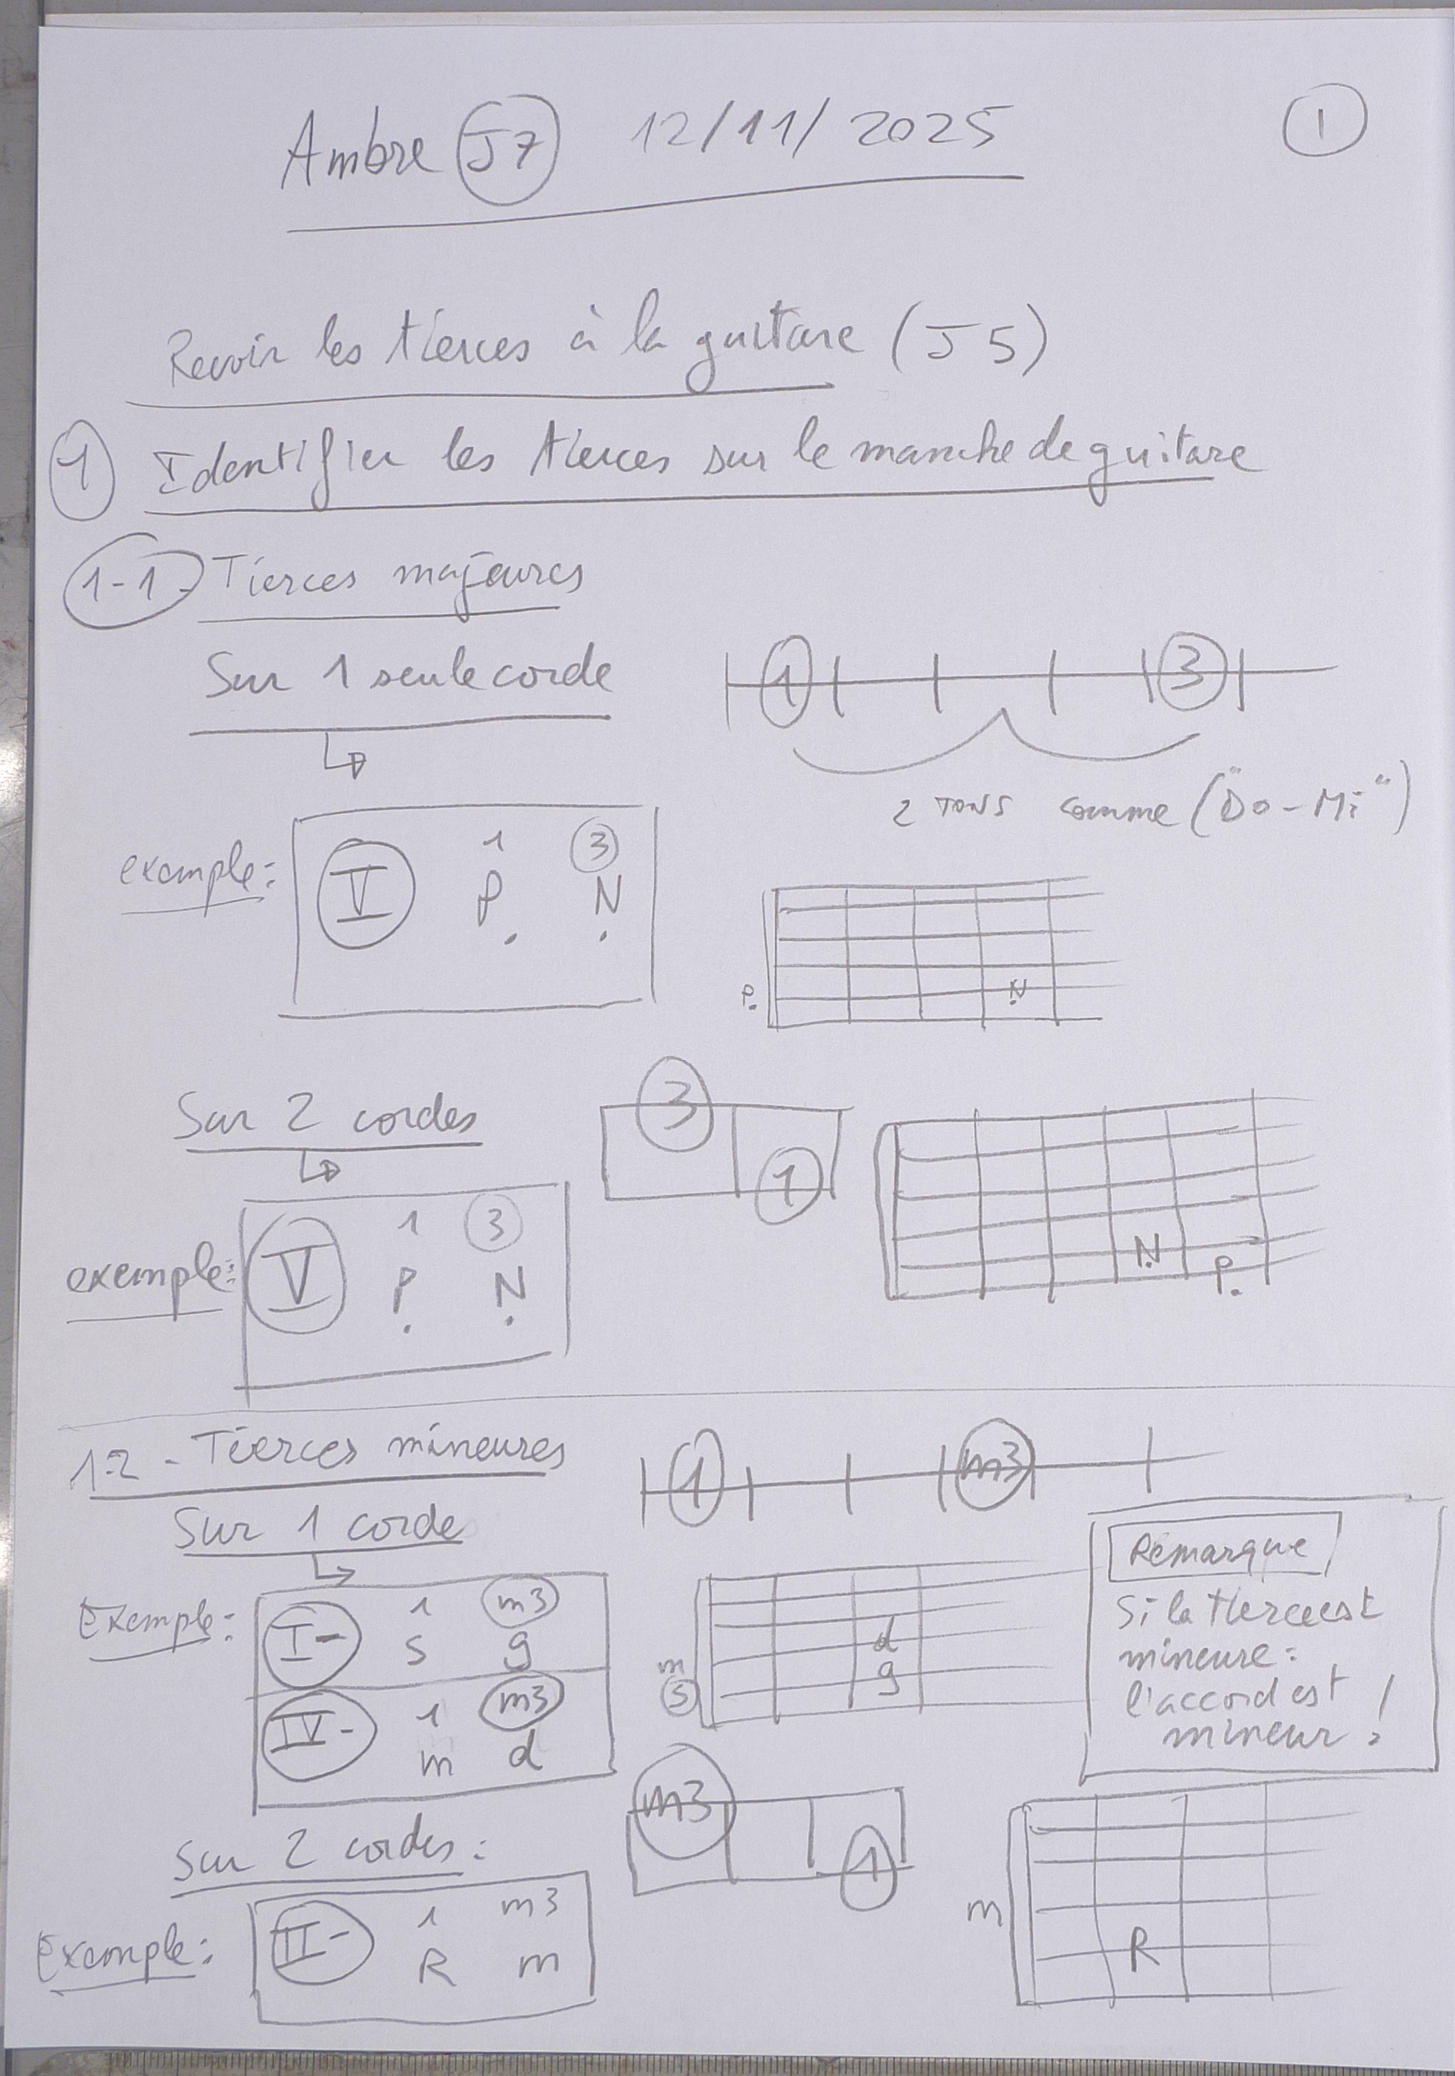 Ambre J7 12/11/2025 1
Revoir les tierces à la guitare (J5)
1 Identifier les tierces sur le manche de guitare
1-1- Tierces majeures
Sur 1 seule corde
1 3
2 TONS comme ("Do-Mi")
exemple: V 1 3
P. N.
P. N.
Sur 2 cordes
3
1
exemple: V 1 3
P. N.
N.
P.
1-2 - Tierces mineures
1 m3
Sur 1 corde
Exemple: I- 1 m3
s g
IV- 1 m3
m d
m d
s g
Remarque
Si la tierce est
mineure:
l'accord est
mineur !
Sur 2 cordes:
m3
1
Exemple: 1 m3
R m
m
R